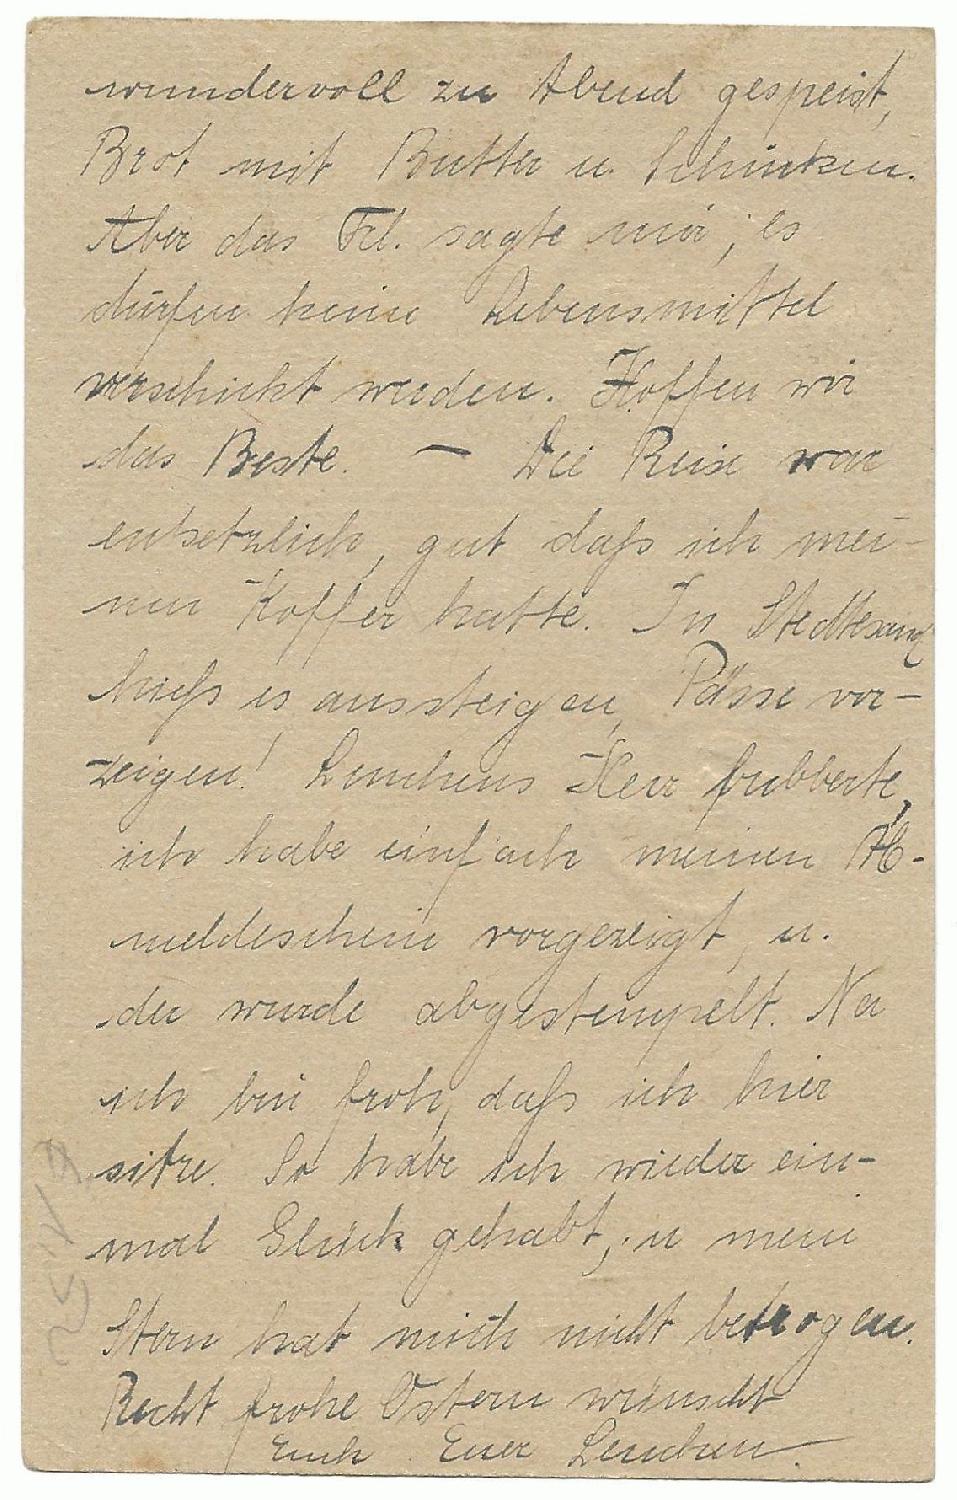 wundervoll zu Abend gespeist,
Brot mit Butter u. Schinken.
Aber das Frl. sagte mir, es
dürfen keine Lebensmittel
verschickt werden. Hoffen wir
das Beste. — Die Reise war
entsetzlich, gut daß ich mei-
nen Koffer hatte. In
hieß es aussteigen, Pässe vor-
zeigen! Lenchens Herz bubberte,
ich habe einfach meinen Ab-
meldeschein vorgezeigt, u.
der wurde abgestempelt. Na
ich bin froh, daß ich hier
sitze. So habe ich wieder ein-
mal Glück gehabt, u mein
Stern hat mich nicht betrogen.
Recht frohe Ostern wünscht
Euch Euer Lenchen.